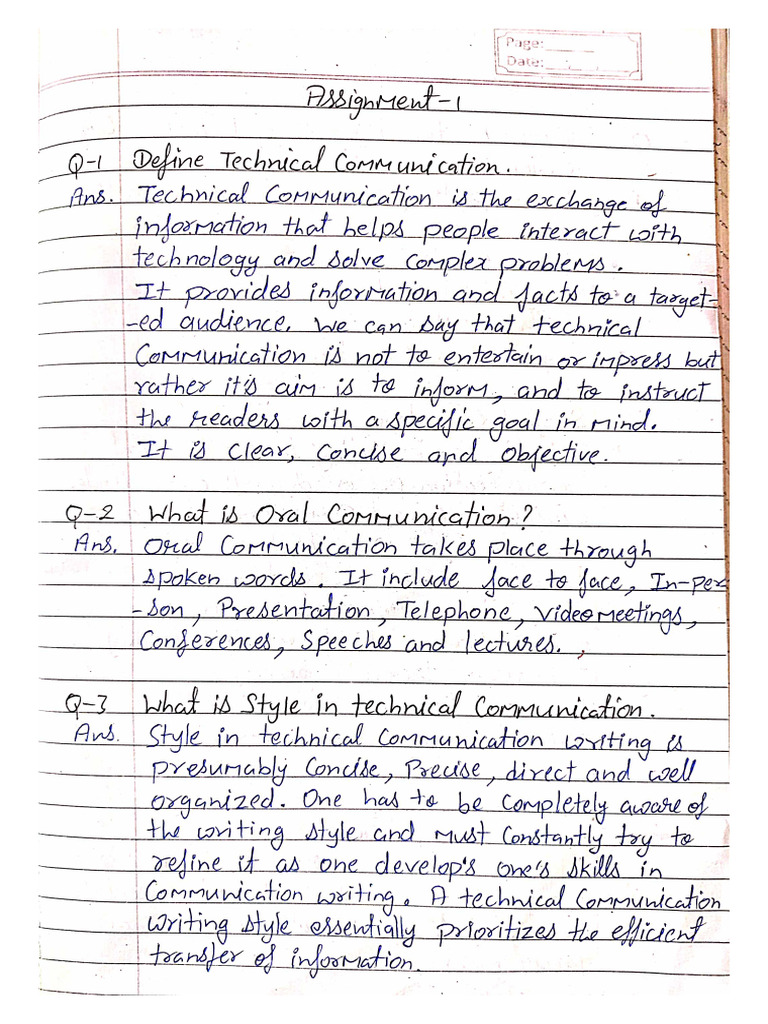 Page:
Date:
Assignment-1
Q-1 Define Technical Communication.
Ans. Technical Communication is the exchange of
information that helps people interact with
technology and solve complex problems.
It provides information and facts to a target-
-ed audience. We can say that technical
Communication is not to entertain or impress but
rather it's aim is to inform, and to instruct
the readers with a specific goal in mind.
It is clear, Concise and objective.
Q-2 What is Oral Communication?
Ans. Oral Communication takes place through
spoken words. It include face to face, In-per
-son, Presentation, Telephone, Video Meetings,
Conferences, Speeches and lectures.
Q-3 What is Style in technical Communication.
Ans. Style in technical Communication writing is
presumably Concise, Precise, direct and well
organized. One has to be Completely aware of
the writing style and must Constantly try to
refine it as one develop's one's skills in
Communication writing. A technical Communication
writing style essentially prioritizes the efficient
transfer of information.